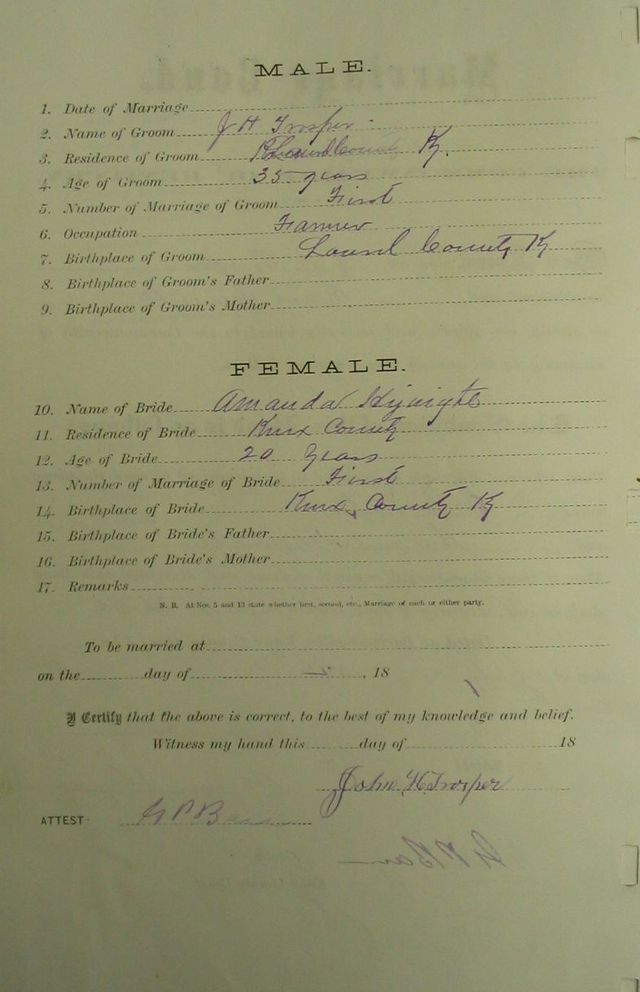 MALE.
1. Date of Marriage
2. Name of Groom J H Trosper
3. Residence of Groom Ky.
4. Age of Groom 35 years
5. Number of Marriage of Groom First
6. Occupation Farmer
7. Birthplace of Groom Laurel County Ky
8. Birthplace of Groom's Father
9. Birthplace of Groom's Mother
FEMALE.
10. Name of Bride Amanda
11. Residence of Bride Knox County
12. Age of Bride 20 years
13. Number of Marriage of Bride First
14. Birthplace of Bride Knox County Ky
15. Birthplace of Bride's Father
16. Birthplace of Bride's Mother
17. Remarks
N. B. At Nos. 5 and 13 state whether first, second, etc., Marriage of each or either party.
To be married at
on the day of , 18
I Certify that the above is correct, to the best of my knowledge and belief.
Witness my hand this day of 18
John H Trosper
ATTEST